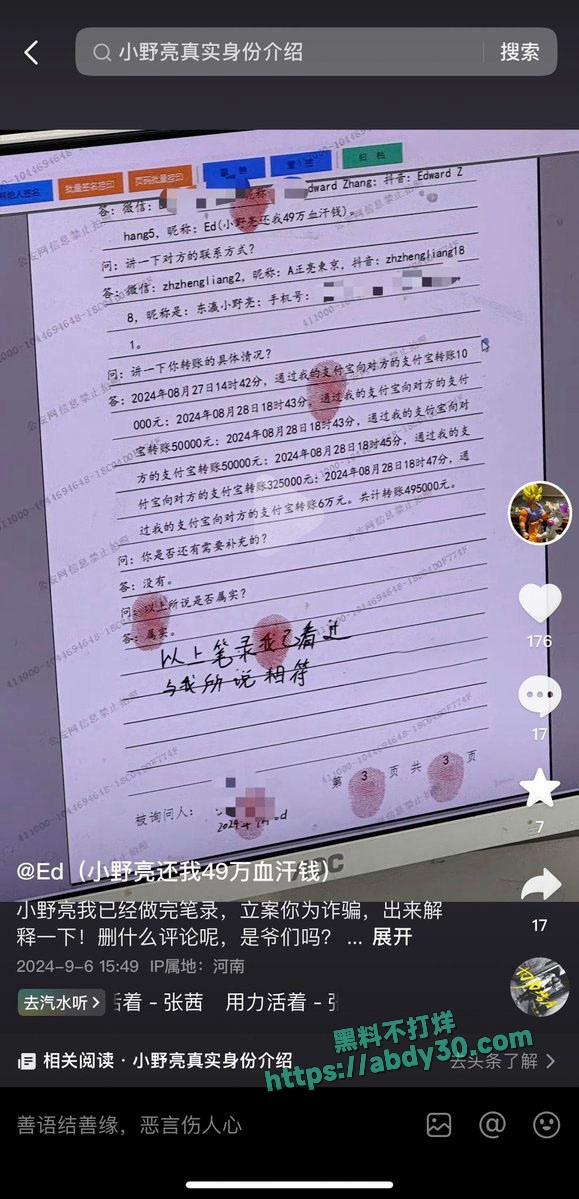 小野亮真实身份介绍
搜索
其他人签名
批量签名捺印
页码批量捺印
归 档
答：微信：
昵称：
dward Zhang；抖音：Edward Z
hang5，昵称：Ed(小野亮还我49万血汗钱)。
问：讲一下对方的联系方式？
答：微信：zhzhengliang2，昵称：A正亮東京，抖音：zhzhengliang18
8，昵称是：东瀛小野亮；手机号：
1。
问：讲一下你转账的具体情况？
答：2024年08月27日14时42分，通过我的支付宝向对方的支付宝转账10
000元；2024年08月28日18时43分，通过我的支付宝向对方的支付
宝转账50000元；2024年08月28日18时43分，通过我的支付宝向对
方的支付宝转账50000元；2024年08月28日18时45分，通过我的支
付宝向对方的支付宝转账325000元；2024年08月28日18时47分，通
过我的支付宝向对方的支付宝转账6万元。共计转账495000元。
问：你是否还有需要补充的？
答：没有。
问：以上所说是否属实？
答：属实。
以上笔录我已看过
与我所说相符
第 3 页 共 3 页
被询问人：
176
17
7
17
@Ed（小野亮还我49万血汗钱）
小野亮我已经做完笔录，立案你为诈骗，出来解
释一下！删什么评论呢，是爷们吗？ ... 展开
2024-9-6 15:49 IP属地：河南
去汽水听 >
活着 - 张茜 用力活着 - 张
相关阅读 · 小野亮真实身份介绍
去头条了解 >
黑料不打烊
https://abdy30.com
善语结善缘，恶言伤人心